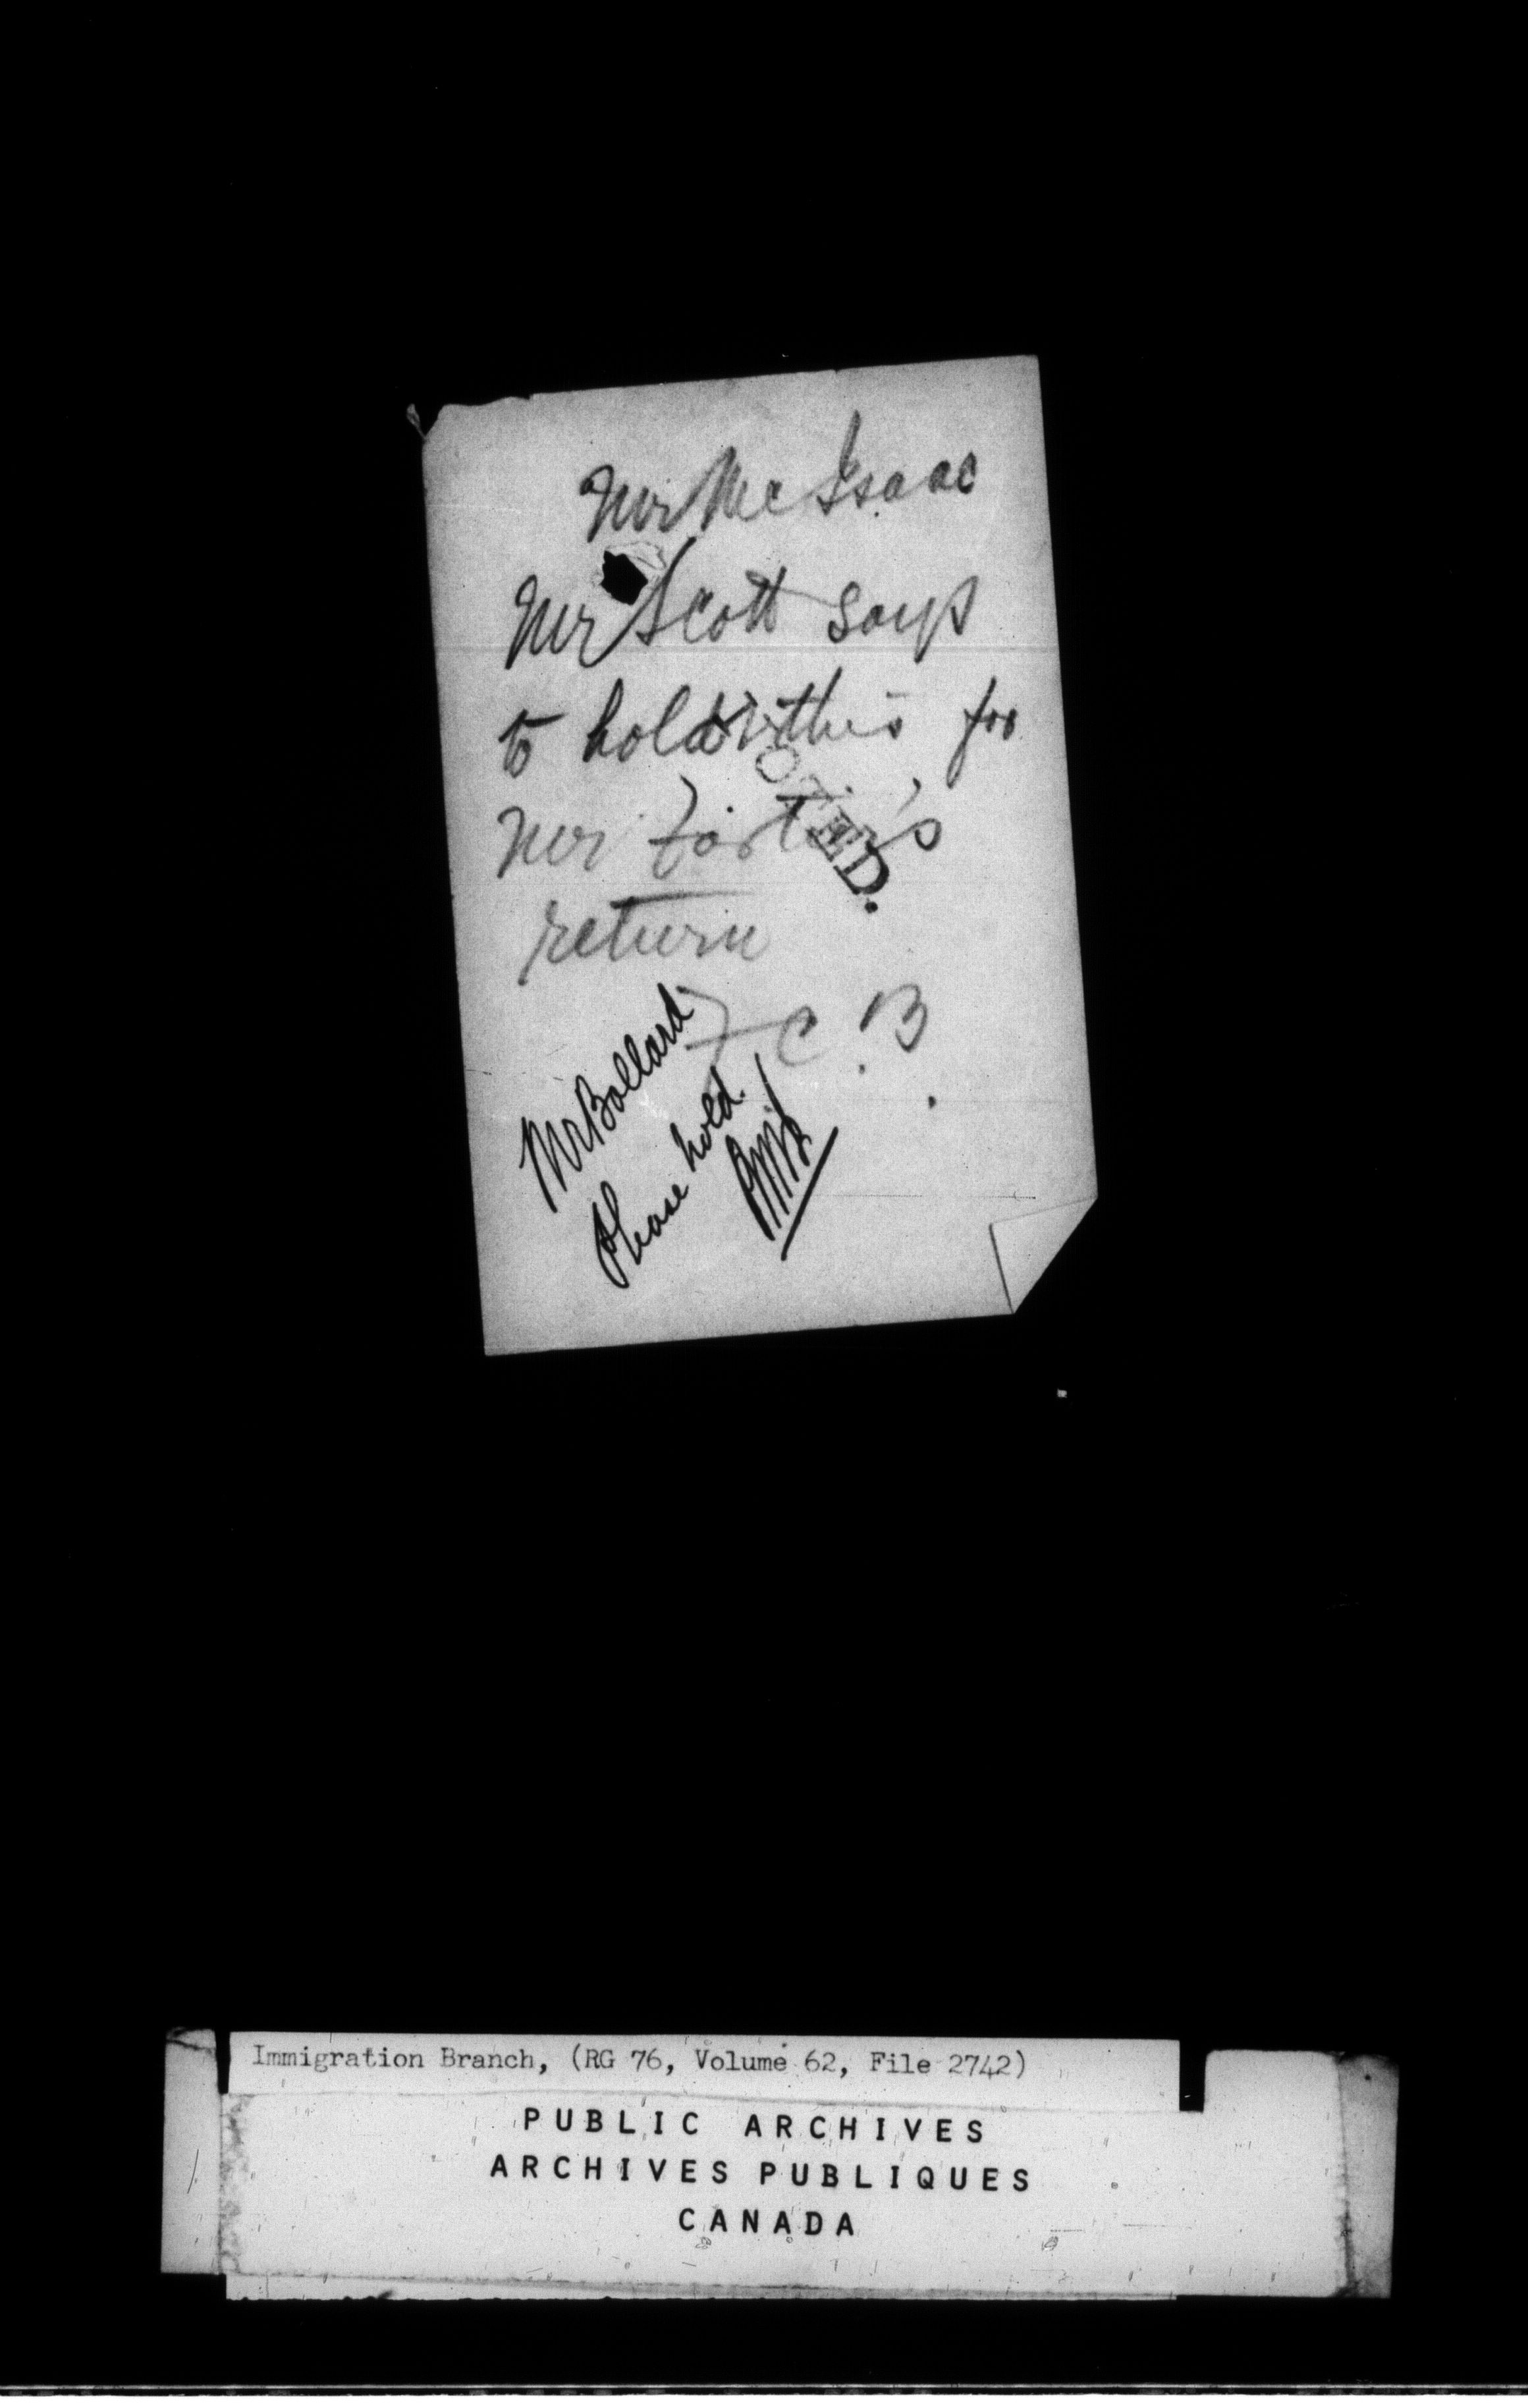 Mr McIsaac
Mr Scott says
to hold this for
Mr Fortier's
return
F C. B.
NOTED.
Mr Bollard
Please hold.
Immigration Branch, (RG 76, Volume 62, File 2742)
PUBLIC ARCHIVES
ARCHIVES PUBLIQUES
CANADA